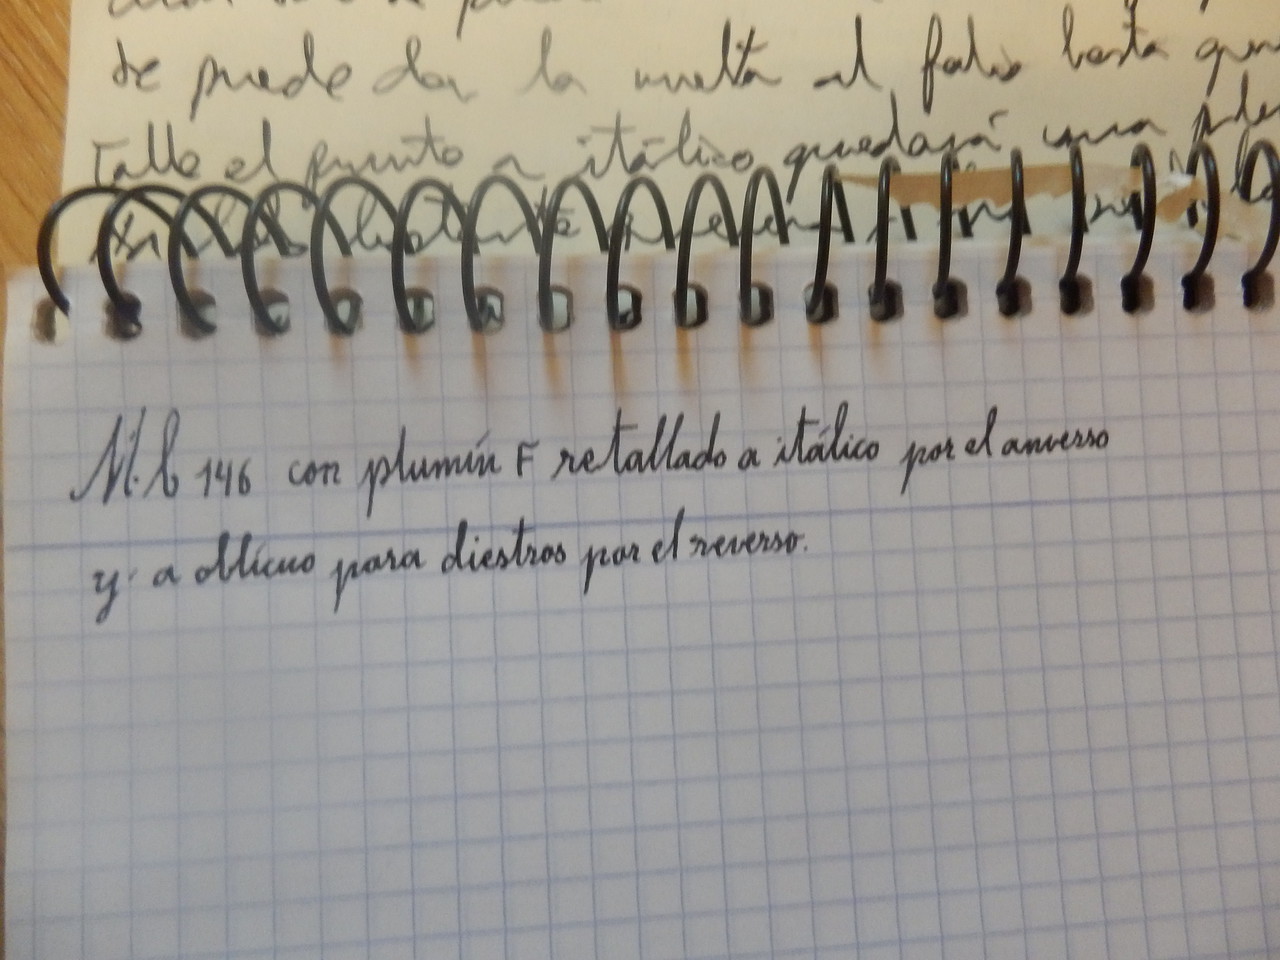 se puede dar la vuelta al folio hasta que
Talle el punto a itálico quedará una
M.b 146 con plumín F retallado a itálico por el anverso
y a oblicuo para diestros por el reverso.